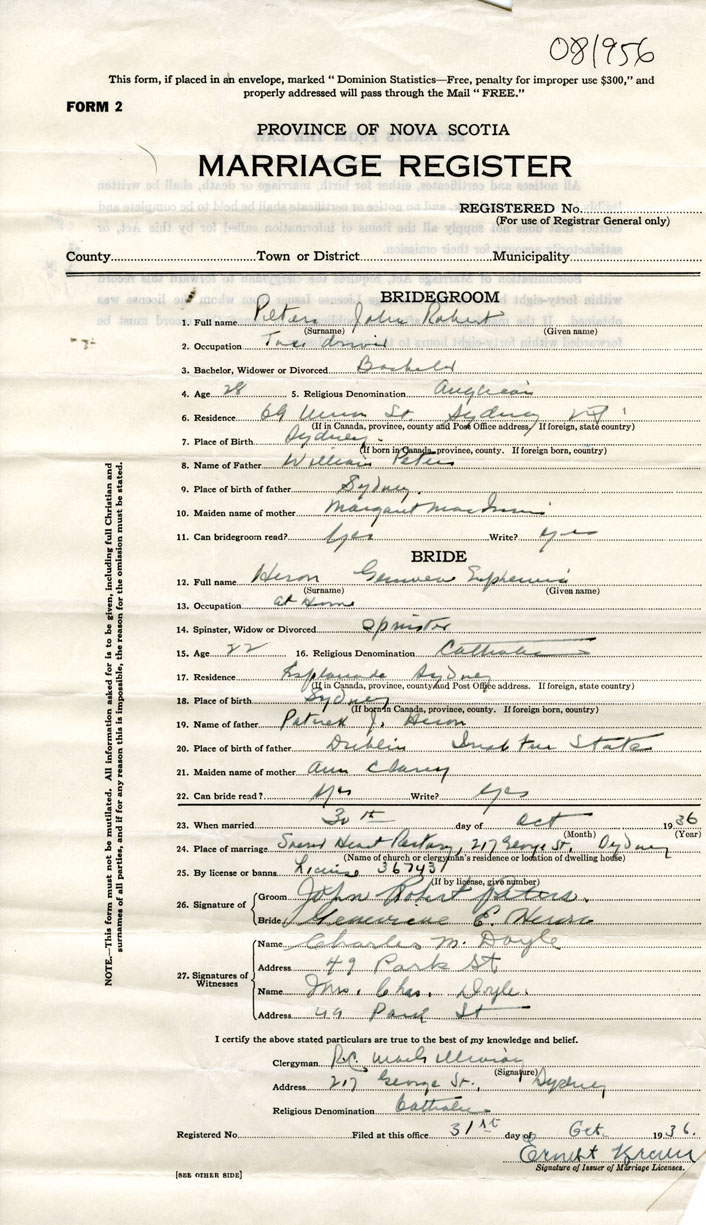 08/956
This form, if placed in an envelope, marked “Dominion Statistics—Free, penalty for improper use $300,” and
properly addressed will pass through the Mail “FREE.”
FORM 2
PROVINCE OF NOVA SCOTIA
MARRIAGE REGISTER
REGISTERED No.
(For use of Registrar General only)
County Town or District Municipality
BRIDEGROOM
1. Full name Peters John Robert
(Surname) (Given name)
2. Occupation Taxi driver
3. Bachelor, Widower or Divorced Bachelor
4. Age 28 5. Religious Denomination Anglican
6. Residence 69 Union St. Sydney
(If in Canada, province, county and Post Office address. If foreign, state country)
7. Place of Birth Sydney
(If born in Canada, province, county. If foreign born, country)
8. Name of Father William Peters
9. Place of birth of father Sydney.
10. Maiden name of mother Margaret
11. Can bridegroom read? Yes Write? Yes
BRIDE
12. Full name Heron Genevieve Euphemia
(Surname) (Given name)
13. Occupation at Home
14. Spinster, Widow or Divorced Spinster
15. Age 22 16. Religious Denomination Catholic
17. Residence Esplanade Sydney
(If in Canada, province, county and Post Office address. If foreign, state country)
18. Place of birth Sydney
(If born in Canada, province, county. If foreign born, country)
19. Name of father Patrick J. Heron
20. Place of birth of father Dublin Irish Free State
21. Maiden name of mother Ann Clancy
22. Can bride read? Yes Write? Yes
23. When married 30th day of Oct 1936
(Month) (Year)
24. Place of marriage Sacred Heart Rectory, 217 George St, Sydney
(Name of church or clergyman's residence or location of dwelling house)
25. By license or banns License 36743
(If by license, give number)
26. Signature of
Groom John Robert Peters.
Bride Genevieve E. Heron
27. Signatures of Witnesses
Name Charles M. Doyle
Address 49 Park St
Name Mrs. Chas. Doyle.
Address 49 Park St
I certify the above stated particulars are true to the best of my knowledge and belief.
Clergyman R.C.
(Signature)
Address 217 George St., Sydney
Religious Denomination Catholic
Registered No. Filed at this office 31st day of Oct. 1936.
Ernest
Signature of Issuer of Marriage Licenses.
[SEE OTHER SIDE]
NOTE.—This form must not be mutilated. All information asked for is to be given, including full Christian and
surnames of all parties, and if for any reason this is impossible, the reason for the omission must be stated.